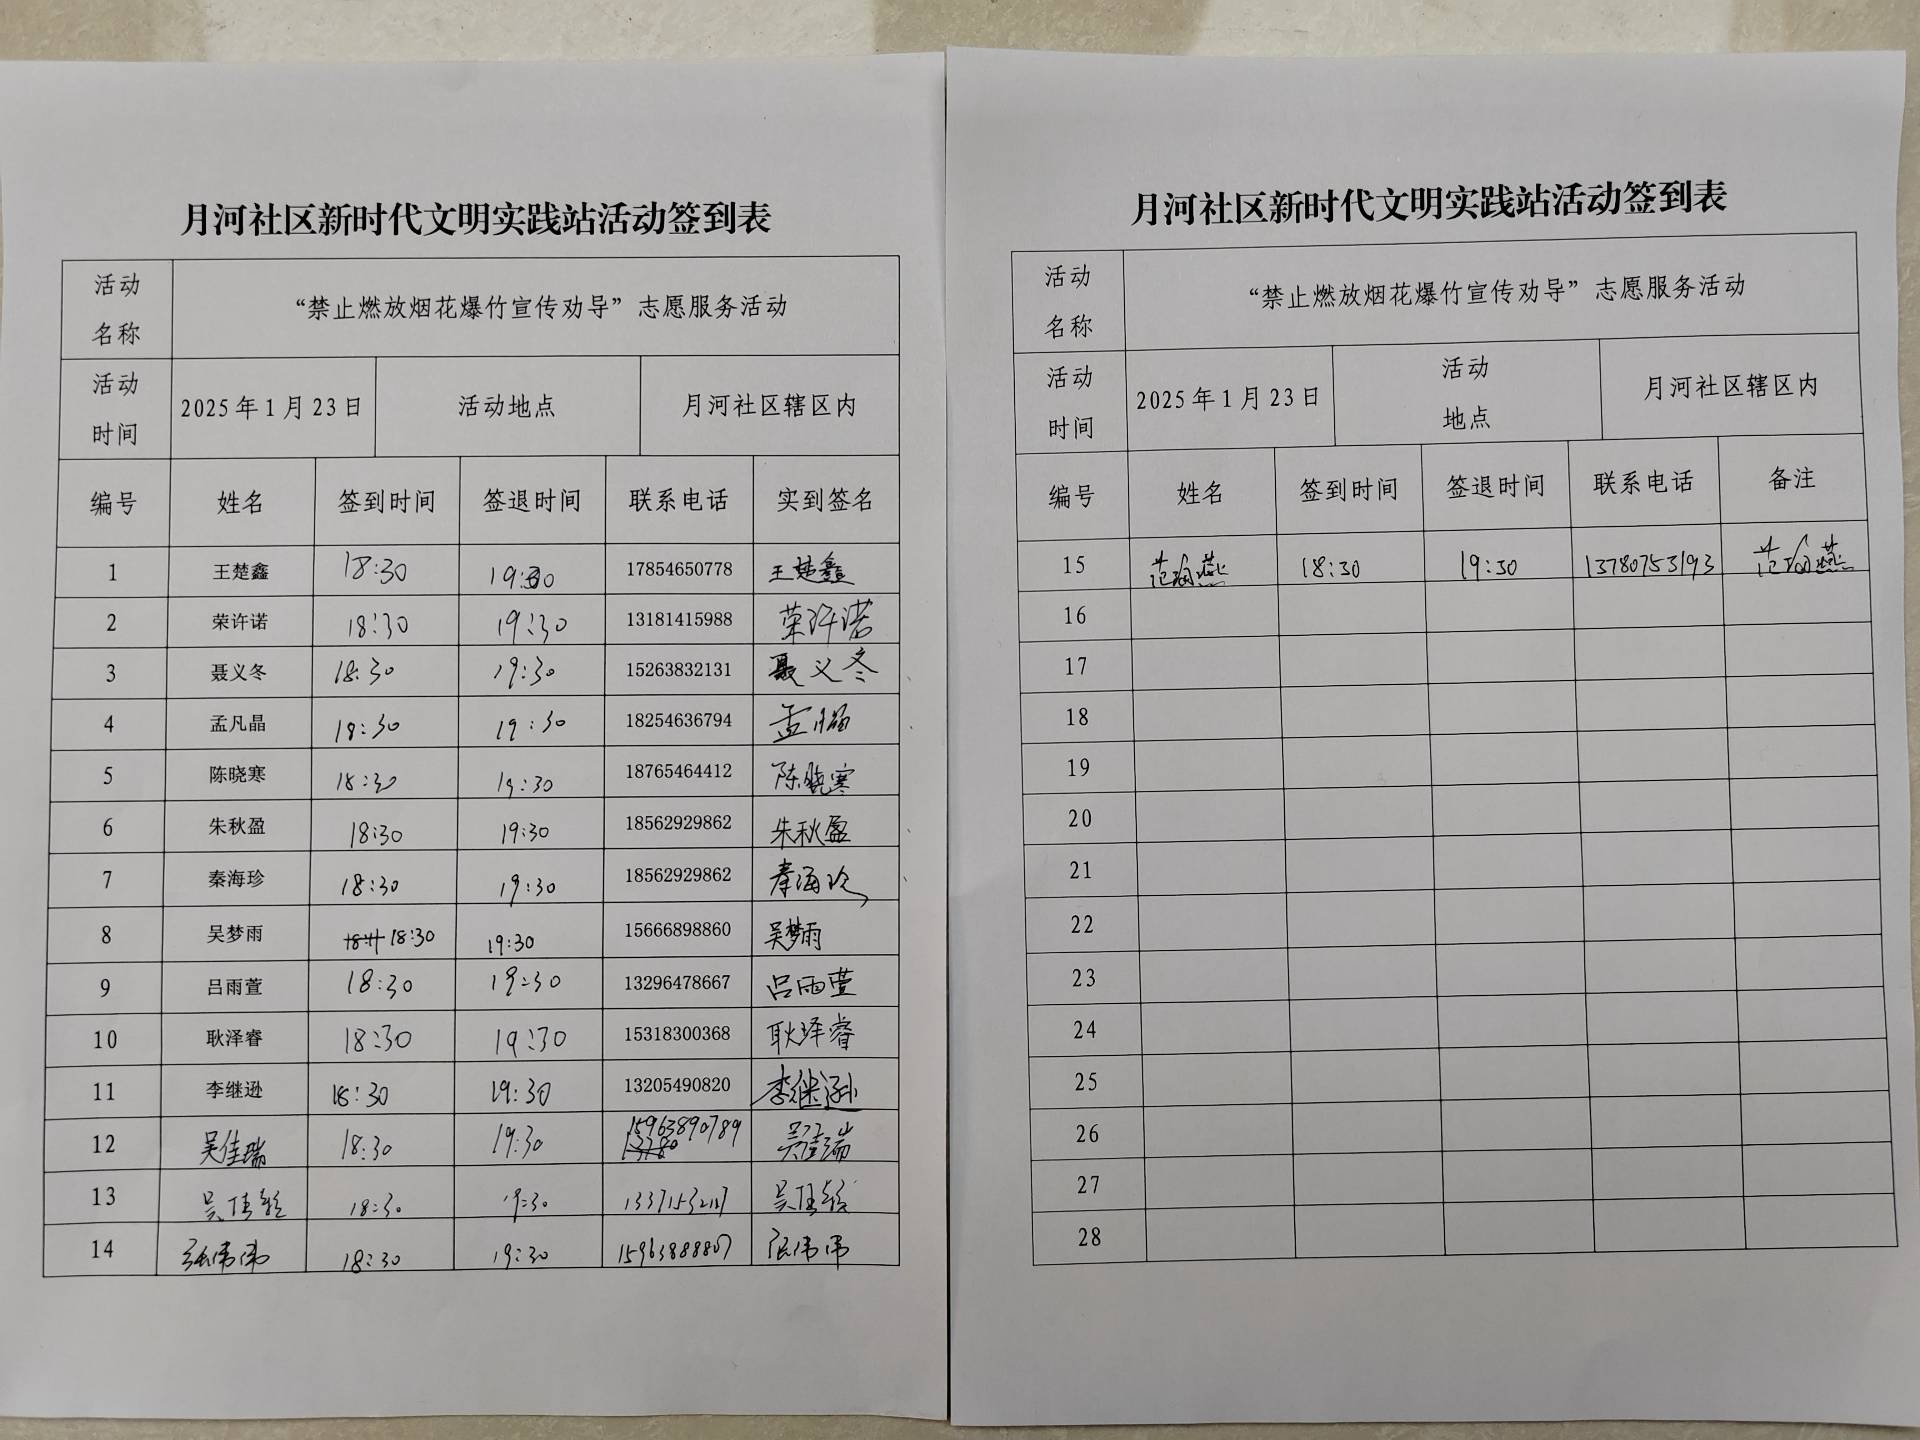 月河社区新时代文明实践站活动签到表
活动名称 “禁止燃放烟花爆竹宣传劝导”志愿服务活动
活动时间 2025年1月23日 活动地点 月河社区辖区内
编号 姓名 签到时间 签退时间 联系电话 实到签名
1 王楚鑫 18:30 19:30 17854650778 王楚鑫
2 荣许诺 18:30 19:30 13181415988 荣许诺
3 聂义冬 18:30 19:30 15263832131 聂义冬
4 孟凡晶 18:30 19:30 18254636794 孟凡晶
5 陈晓寒 18:30 19:30 18765464412 陈晓寒
6 朱秋盈 18:30 19:30 18562929862 朱秋盈
7 秦海珍 18:30 19:30 18562929862 秦海珍
8 吴梦雨 18:30 19:30 15666898860 吴梦雨
9 吕雨萱 18:30 19:30 13296478667 吕雨萱
10 耿泽睿 18:30 19:30 15318300368 耿泽睿
11 李继逊 18:30 19:30 13205490820 李继逊
12 吴佳瑞 18:30 19:30 15963890789 吴佳瑞
13 18:30 19:30
14 张伟伟 18:30 19:30 15963888807 张伟伟
月河社区新时代文明实践站活动签到表
活动名称 “禁止燃放烟花爆竹宣传劝导”志愿服务活动
活动时间 2025年1月23日 活动地点 月河社区辖区内
编号 姓名 签到时间 签退时间 联系电话 备注
15 范瑜燕 18:30 19:30 13780753193 范瑜燕
16
17
18
19
20
21
22
23
24
25
26
27
28